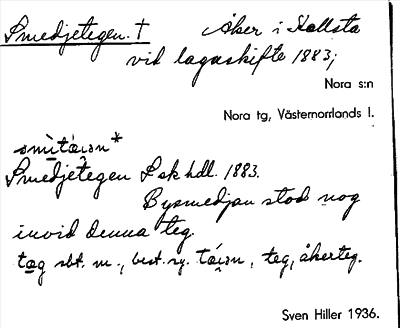 Smedjetegen. † Åker i Hällsta
vid lagaskifte 1883;
Nora s:n
Nora tg, Västernorrlands l.
Smedjetegen Lsk hdl. 1883.
Bysmedjan stod nog
invid denna teg.
tæg sbt. m., best. sg. , teg, åkerteg.
Sven Hiller 1936.